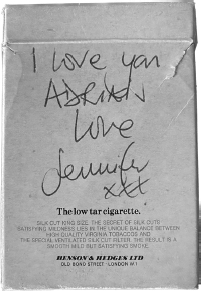 I love you
ADRIAN
Love
Jennifer
xxx
The low tar cigarette.
SILK CUT KING SIZE. THE SECRET OF SILK CUT'S
SATISFYING MILDNESS LIES IN THE UNIQUE BALANCE BETWEEN
HIGH QUALITY VIRGINIA TOBACCOS AND
THE SPECIAL VENTILATED SILK CUT FILTER. THE RESULT IS A
SMOOTH MILD BUT SATISFYING SMOKE.
BENSON & HEDGES LTD
OLD BOND STREET · LONDON W1